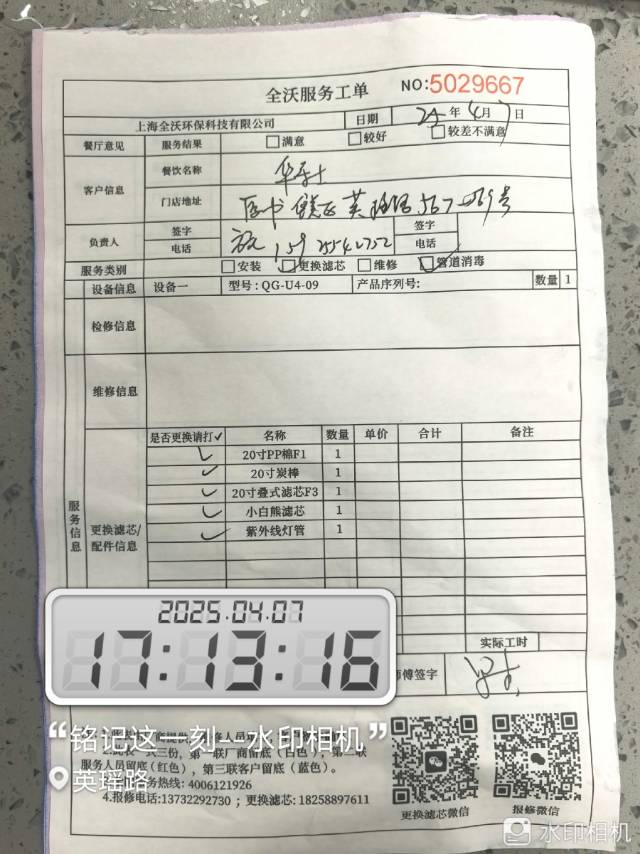 全沃服务工单 NO:5029667
上海全沃环保科技有限公司 日期 25年4月7日
餐厅意见 服务结果 满意 较好 较差不满意
客户信息 餐饮名称 华莱士
门店地址 567
负责人 签字 签字
电话 159 电话
服务类别 安装 更换滤芯 维修 管道消毒
设备信息 设备一 型号:QG-U4-09 产品序列号: 数量 1
检修信息
维修信息
服务信息
更换滤芯/配件信息
是否更换请打✓ 名称 数量 单价 合计 备注
✓ 20寸PP棉F1 1
✓ 20寸炭棒 1
✓ 20寸叠式滤芯F3 1
✓ 小白熊滤芯 1
✓ 紫外线灯管 1
实际工时
师傅签字
2025.04.07
17:13:16
“铭记这一刻，水印相机”
英瑶路
2.此表一式三份，第一联厂商留底（白色），第二联
服务人员留底(红色)，第三联客户留底（蓝色）。
务热线: 4006121926
4.报修电话:13732292730 ; 更换滤芯: 18258897611
更换滤芯微信 报修微信
水印相机